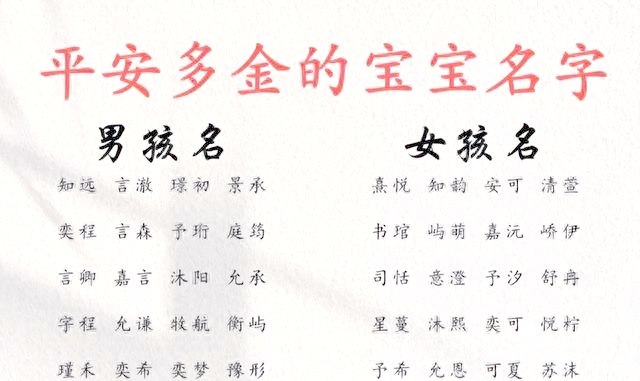 平安多金的宝宝名字
男孩名 女孩名
知远 言澈 璟初 景承 熹悦 知韵 安可 清萱
奕程 言森 予珩 庭筠 书琯 屿萌 嘉沅 峤伊
言卿 嘉言 沐阳 允承 司恬 意澄 予汐 舒冉
字程 允谦 牧航 衡屿 星蔓 沐熙 奕可 悦柠
瑾禾 奕希 奕梦 豫形 予希 允恩 可夏 苏沫